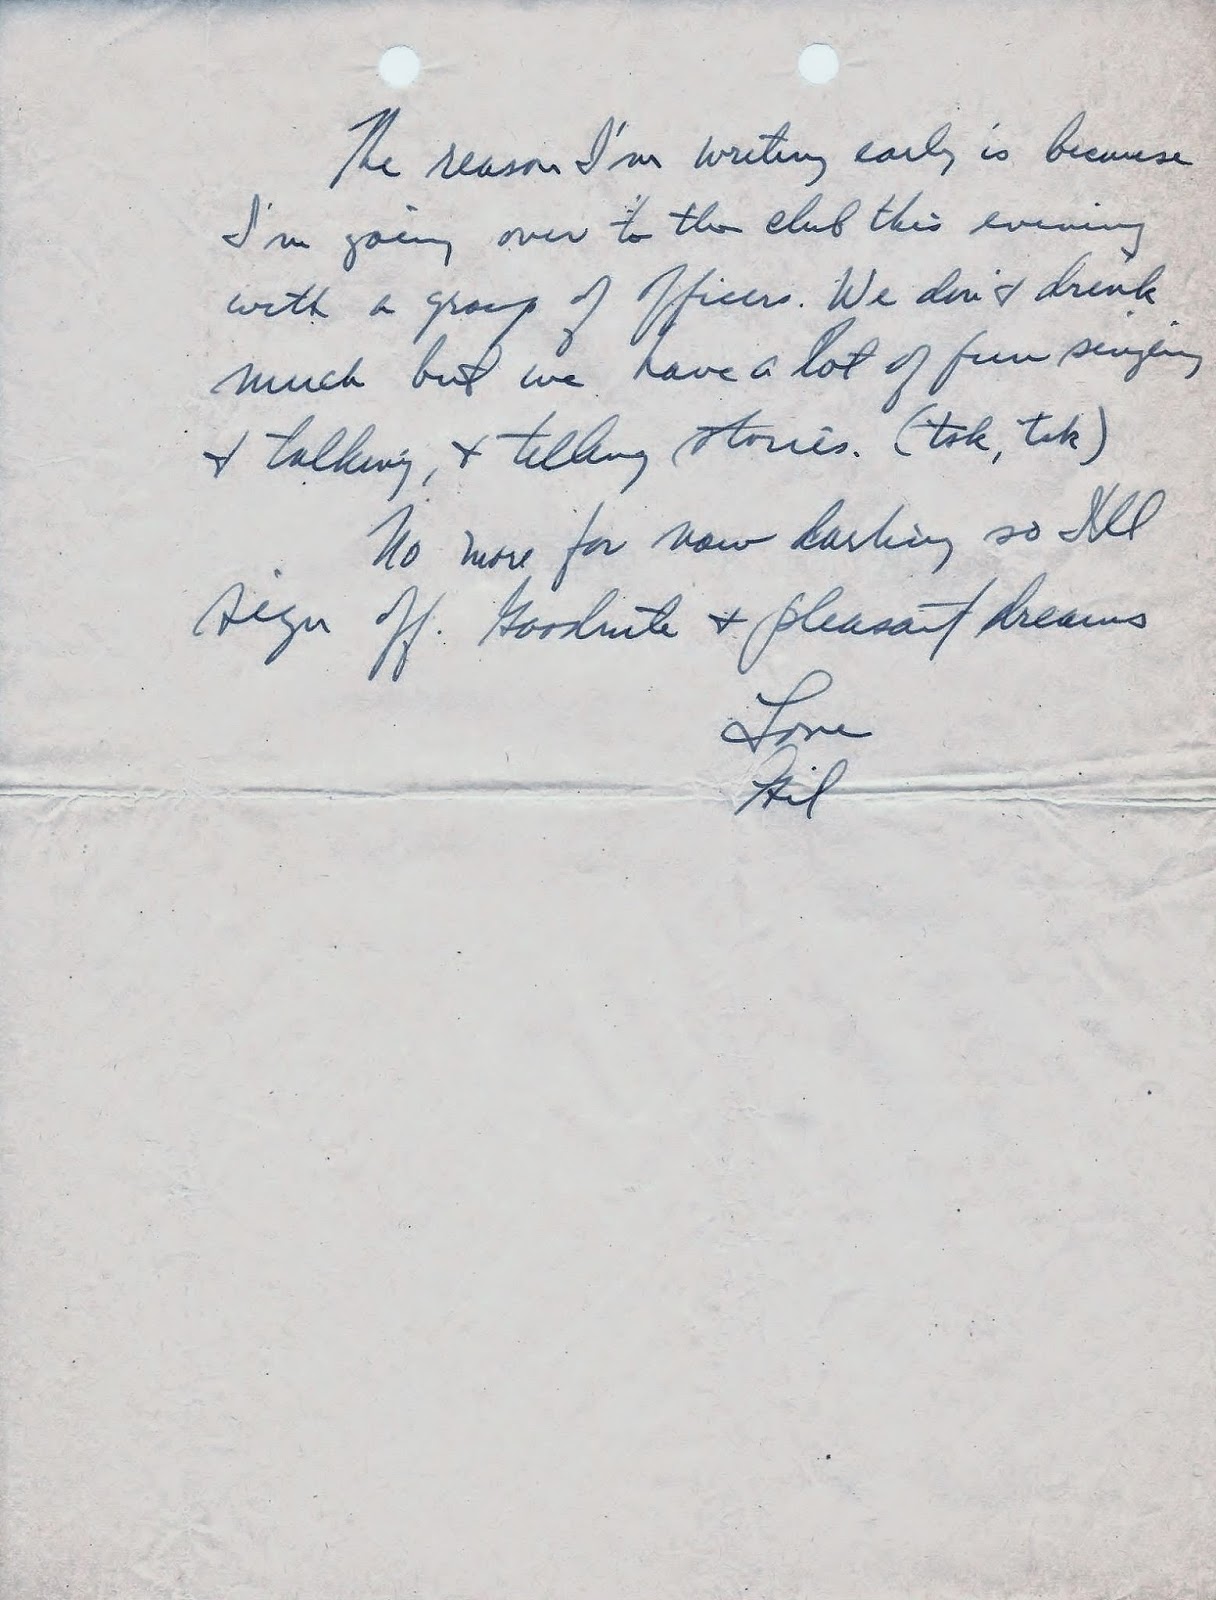 The reason I'm writing early is because
I'm going over to the club this evening
with a group of officers. We don't drink
much but we have a lot of fun singing
& talking, & telling stories. (tsk, tsk)
No more for now darling so I'll
sign off. Goodnite & pleasant dreams
Love
Gil